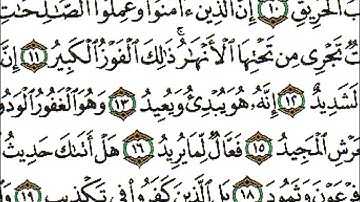 ٱلۡحَرِيقِ ١٠ إِنَّ ٱلَّذِينَ ءَامَنُواْ وَعَمِلُواْ ٱلصَّٰلِحَٰتِ
تَجۡرِي مِن تَحۡتِهَا ٱلۡأَنۡهَٰرُۚ ذَٰلِكَ ٱلۡفَوۡزُ ٱلۡكَبِيرُ ١١ إِنَّ
لَشَدِيدٌ ١٢ إِنَّهُۥ هُوَ يُبۡدِئُ وَيُعِيدُ ١٣ وَهُوَ ٱلۡغَفُورُ ٱلۡوَدُو
ٱلۡمَجِيدُ ١٥ فَعَّالٞ لِّمَا يُرِيدُ ١٦ هَلۡ أَتَىٰكَ حَدِيثُ
وَثَمُودَ ١٨ بَلِ ٱلَّذِينَ كَفَرُواْ فِي تَكۡذِيبٖ ١٩